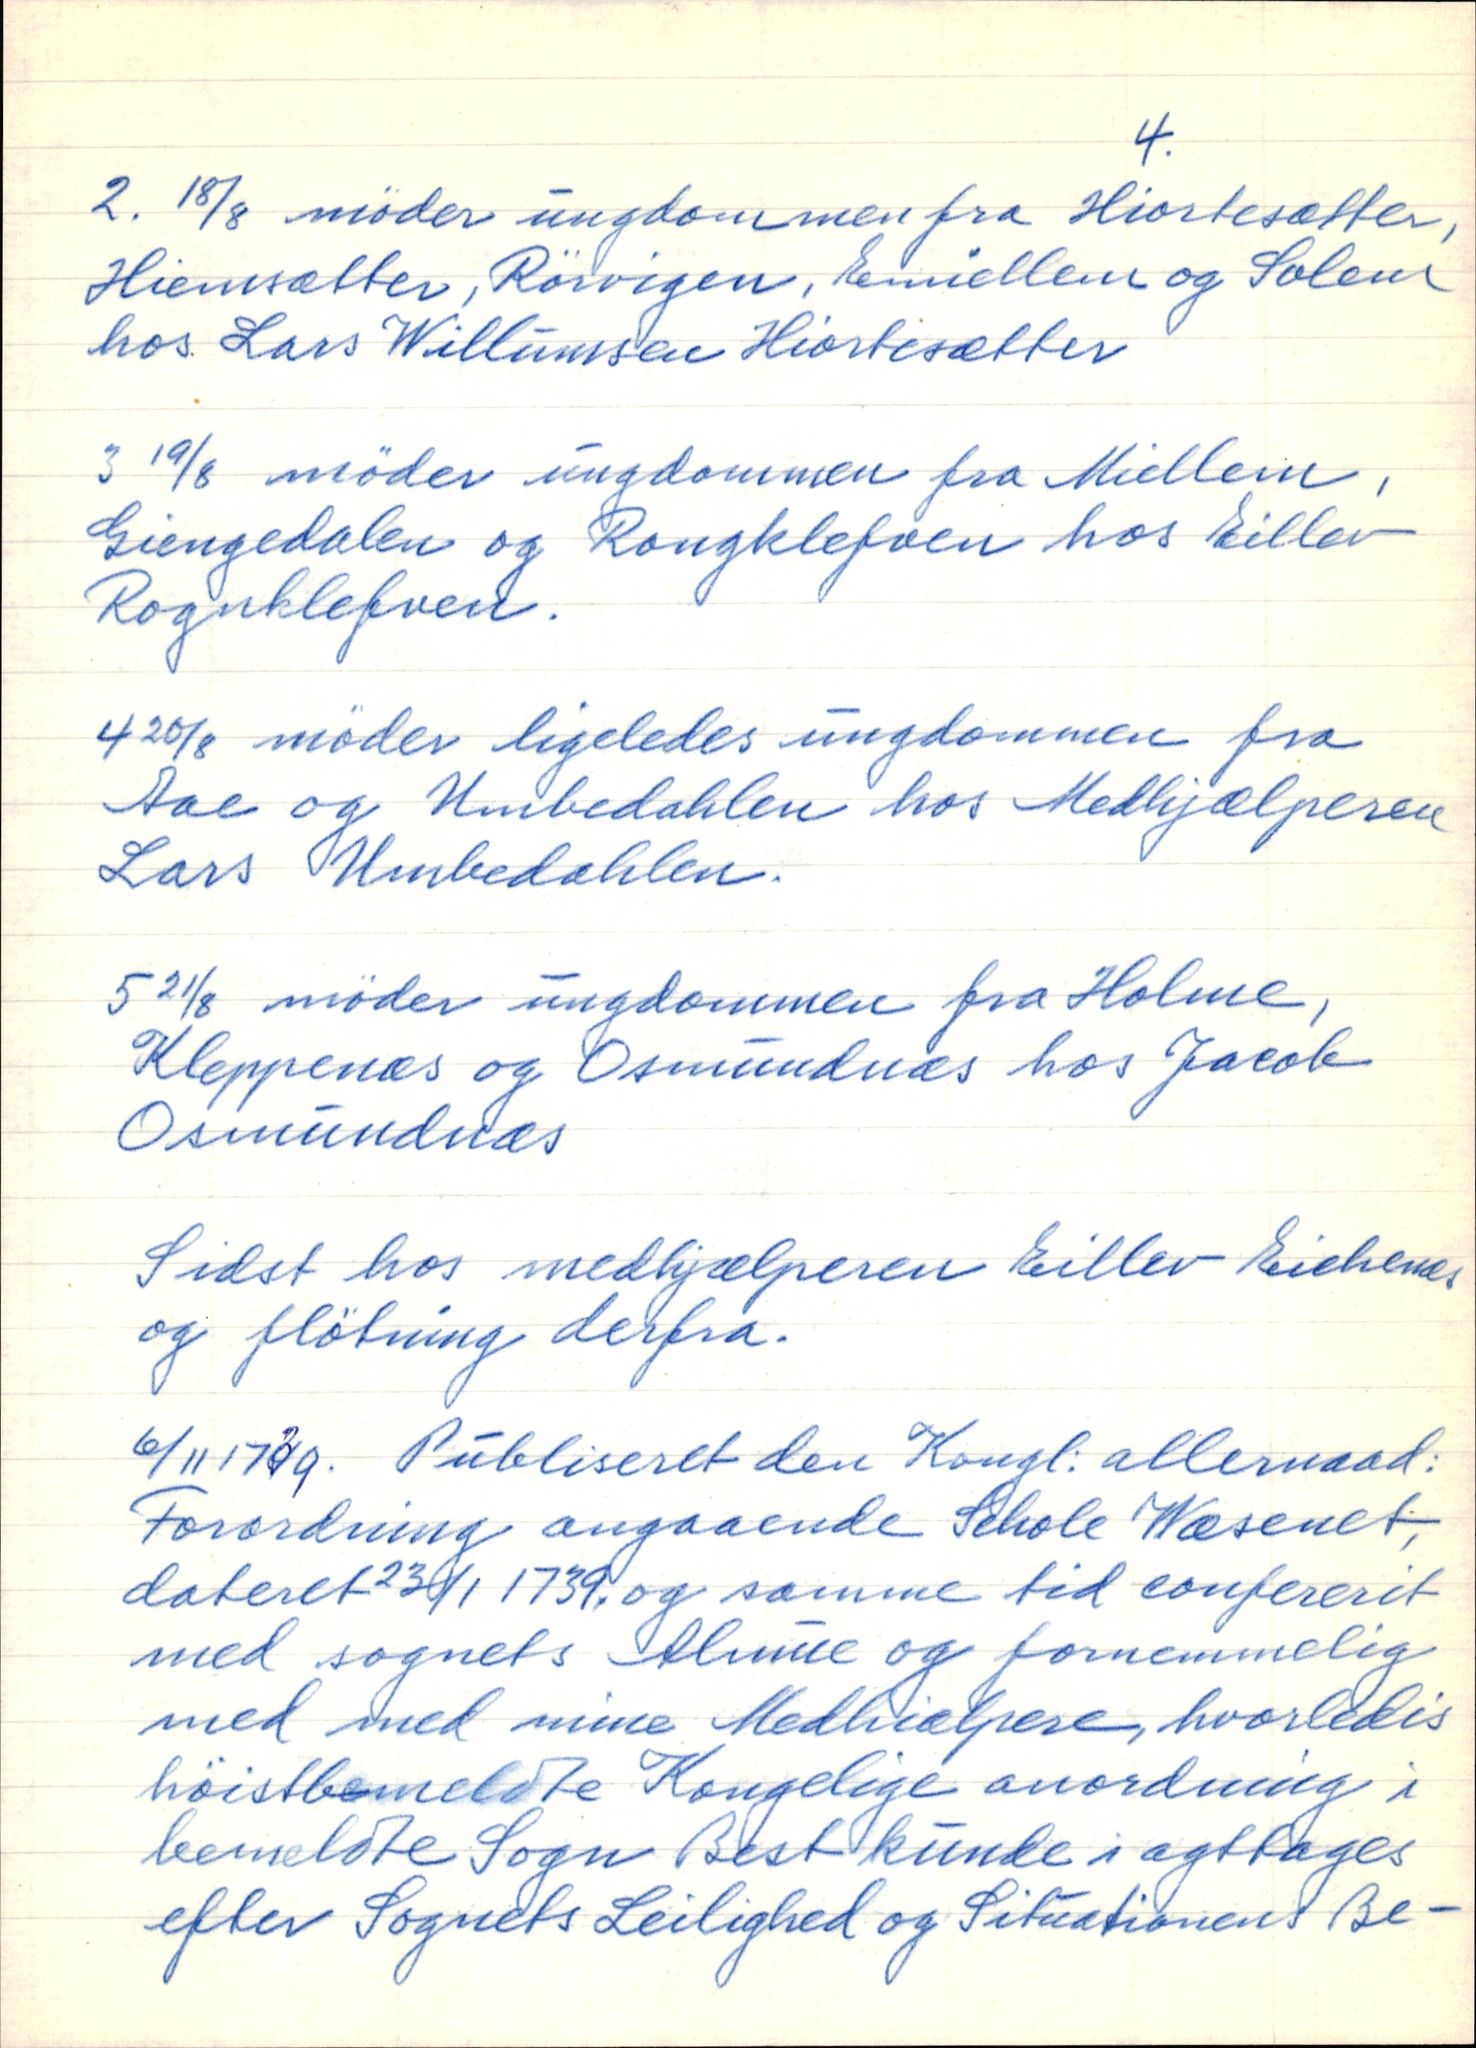 4.
2. 18/8 möder ungdommen fra Hiortesætter,
Hiemsætter, Rörvigen, Emiellem og Solem
hos Lars Willumsen Hiortesætter
3 19/8 möder ungdommen fra Miellem,
Giengedalen og Rongklefven hos Eillev
Rognklefven.
4 20/8 möder ligeledes ungdommen fra
Aae og Umbedahlen hos Medhjælperen
Lars Umbedahlen.
5 21/8 möder ungdommen fra Holme,
Kleppenæs og Osmundnæs hos Jacob
Osmundnæs
Sidst hos medhjælperen Eillev Eichenæs
og flötning derfra.
6/11 1739. Publiseret den Kongl: allernaad:
Forordning angaaende Schole Wæsenet,
dateret 23/1 1739, og samme tid confererit
med sognets Almue og fornemmelig
med med mine Medhiælpere, hvorledis
höistbemeldte Kongelige anordning i
bemeldte Sogn Best kunde i agttages
efter Sognets Leilighed og Situationens Be-